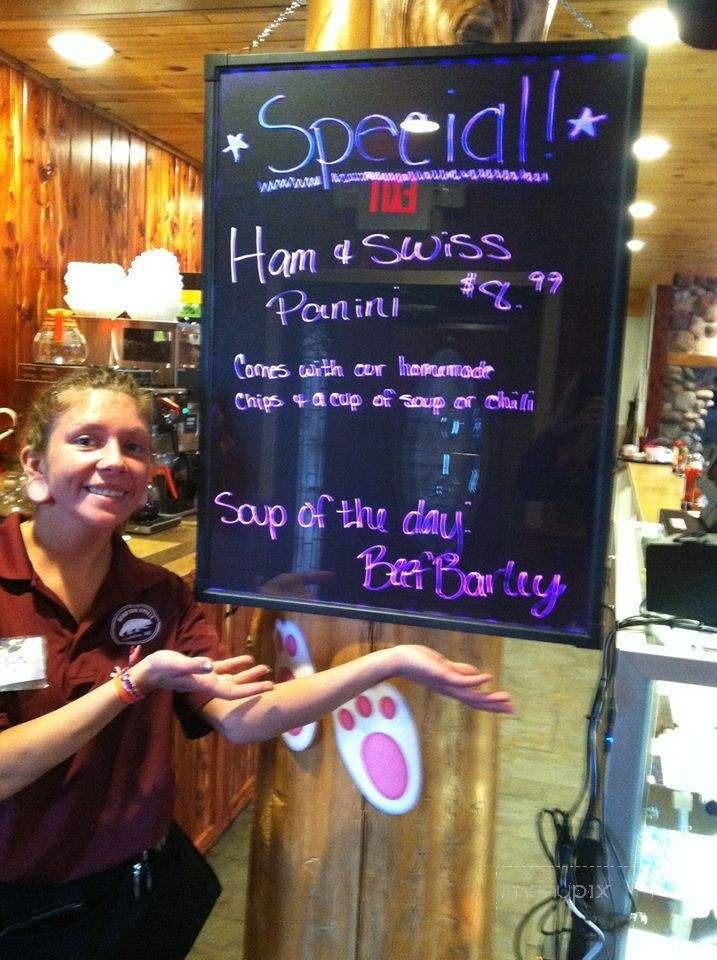 Special!
Ham & Swiss
Panini $8.99
Comes with our homemade
chips & a cup of soup or chilli
Soup of the day:
Beef Barley